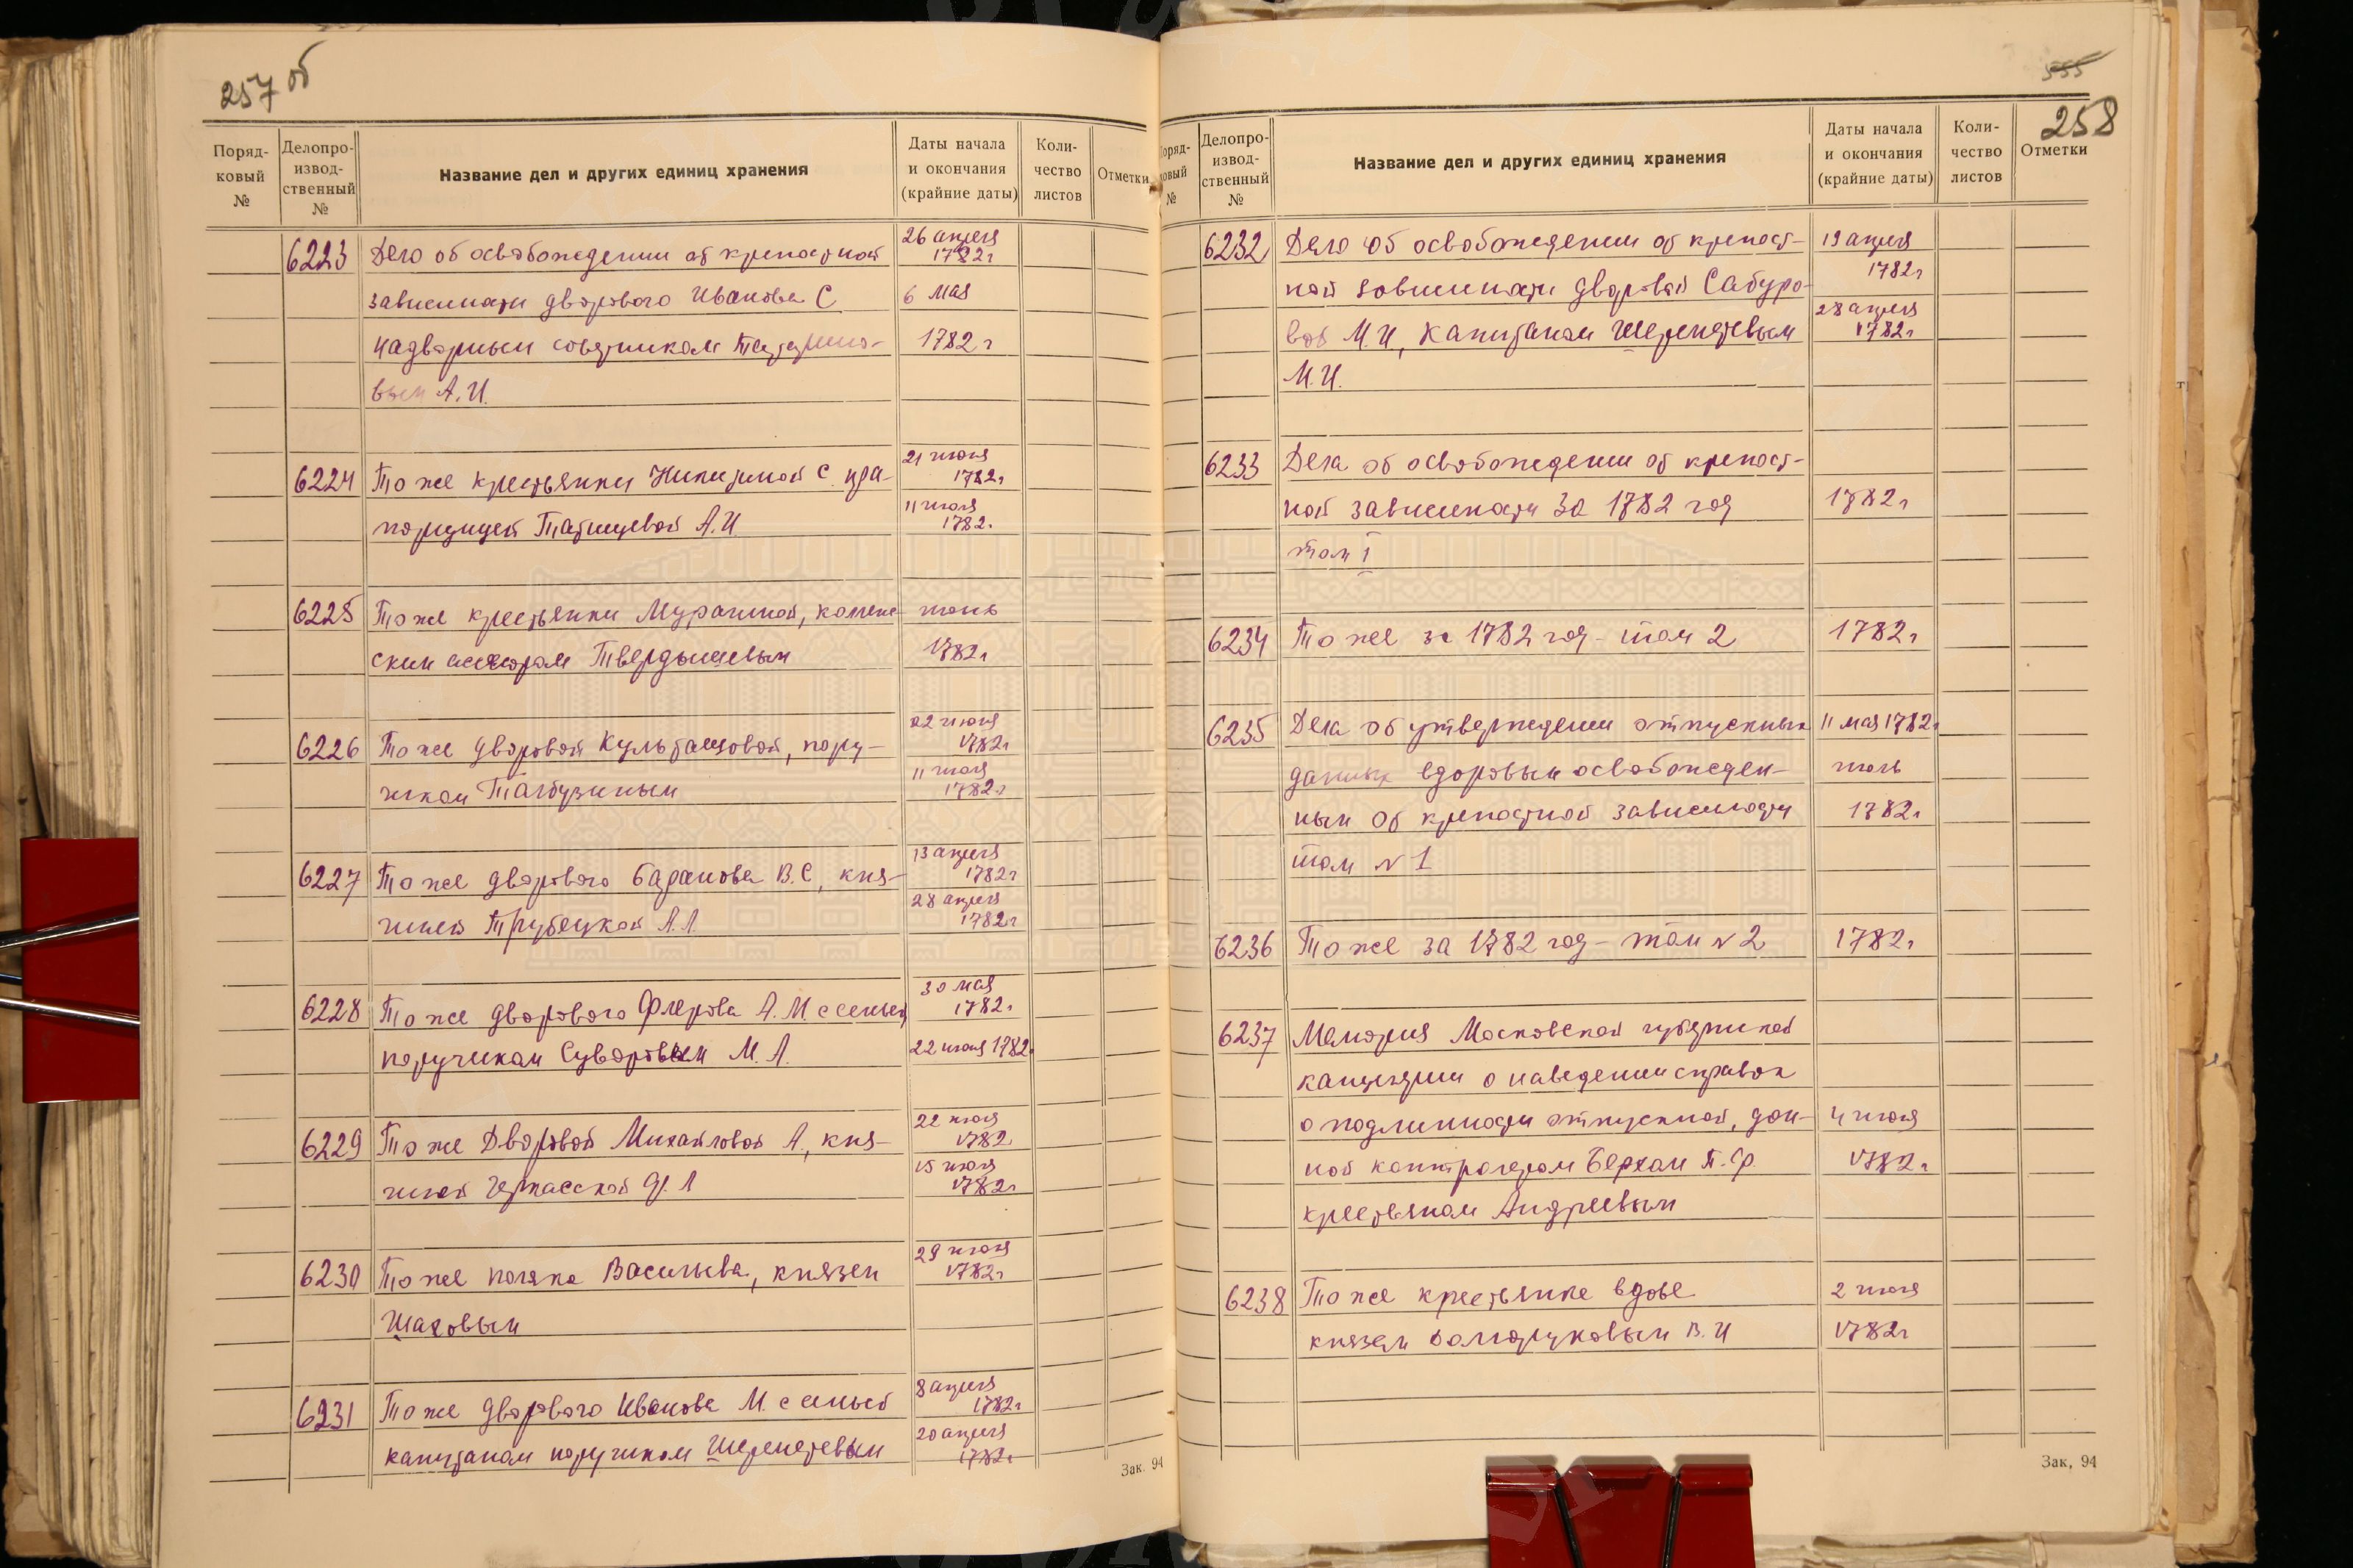 257 об
Поряд-
ковый
№
Делопро-
извод-
ственный
№
Название дел и других единиц хранения
Даты начала
и окончания
(крайние даты)
Коли-
чество
листов
Отметки
6223 Дело об освобождении от крепостной 26 апреля 1782 г
зависимости дворового Иванова С 6 мая
надворным советником 1782 г
вым А.И.
6224 То же крестьянки Никитиной С. пра- 21 июня 1782 г
порщицей Татищевой А.И 11 июля 1782 г
6225 То же крестьянки Мурашиной, коллеж- июнь
ским асессором Твердышевым 1782 г
6226 То же дворовой, пору- 22 июня 1782 г
чиком 11 июля 1782 г
6227 То же дворового Баранова В.С, кня- 13 апреля 1782 г
гиней Трубецкой А.Л 28 апреля 1782 г
6228 То же дворового Флерова А.М. с семьей 30 мая 1782 г
поручиком Суворовым М.А. 22 июня 1782
6229 То же дворовой Михайловой А., кня- 22 июня 1782
гиней Черкасской 15 июля 1782 г
6230 То же поляка Васильева, князем 29 июля 1782 г
Шаховым
6231 То же дворового Иванова М. с семьей 8 апреля 1782 г
капитаном поручиком Шереметевым 20 апреля 1782 г
Зак. 94
555
258
оряд-
овый
№
Делопро-
извод-
ственный
№
Название дел и других единиц хранения
Даты начала
и окончания
(крайние даты)
Коли-
чество
листов
Отметки
6232 Дело об освобождении от крепост- 19 апреля 1782 г
ной зависимости дворовой Сабуро-
вой М.И, капитаном Шереметевым 28 апреля 1782 г
М.И.
6233 Дела об освобождении от крепост-
ной зависимости за 1782 год 1782 г
том I
6234 То же за 1782 год - том 2 1782 г
6235 Дела об утверждении отпускных 11 мая 1782 г
данных дворовым освобожден- июль
ным от крепостной зависимости 1782 г
том № 1
6236 То же за 1782 год - том № 2 1782 г
6237 Мемория Московской губернской
канцелярии о наведении справок
о подлинности отпускной, дан- 4 июля
ной контролером Берхом П.Ф. 1782 г
крестьянам Андреевым
6238 То же крестьянке вдове 2 июля
князем Долгоруковым В.И 1782 г
Зак, 94